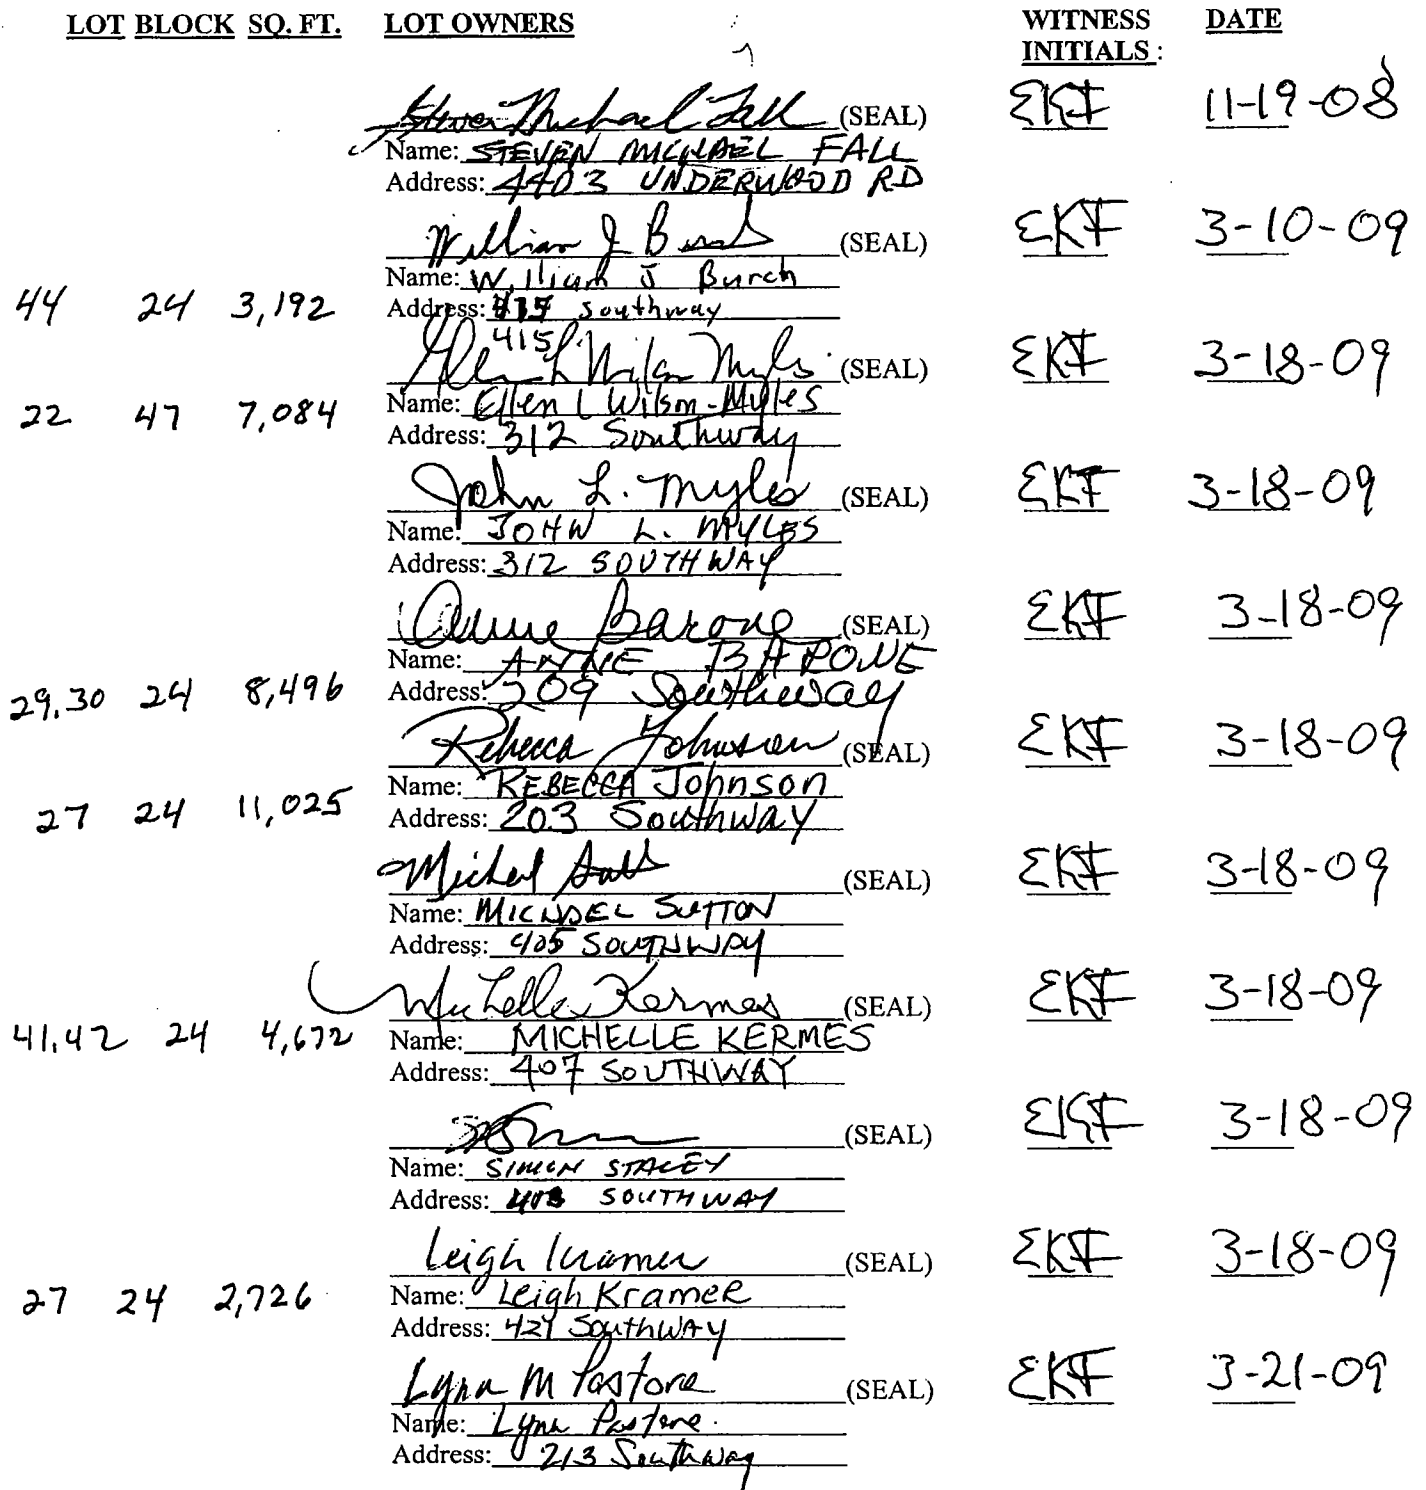 LOT BLOCK SQ. FT. LOT OWNERS WITNESS INITIALS: DATE
Steven Michael Fall (SEAL) EKF 11-19-08
Name: STEVEN MICHAEL FALL
Address: 4403 UNDERWOOD RD
William J Burch (SEAL) EKF 3-10-09
Name: William J Burch
44 24 3,192 Address: Southway
415
Ellen L Wilson Myles (SEAL) EKF 3-18-09
22 47 7,084 Name: Ellen L Wilson-Myles
Address: 312 Southway
John L. Myles (SEAL) EKF 3-18-09
Name: JOHN L. MYLES
Address: 312 SOUTHWAY
Anne Barone (SEAL) EKF 3-18-09
Name: ANNE BARONE
29,30 24 8,496 Address: 209 Southway
Rebecca Johnson (SEAL) EKF 3-18-09
Name: REBECCA Johnson
27 24 11,025 Address: 203 Southway
Michael Sutton (SEAL) EKF 3-18-09
Name: MICHAEL SUTTON
Address: 405 SOUTHWAY
Michelle Kermes (SEAL) EKF 3-18-09
41,42 24 4,672 Name: MICHELLE KERMES
Address: 407 SOUTHWAY
(SEAL) EKF 3-18-09
Name: SIMON STACEY
Address: SOUTHWAY
Leigh Kramer (SEAL) EKF 3-18-09
27 24 2,726 Name: Leigh KRAMER
Address: 427 SouthWAY
Lynn M Pastore (SEAL) EKF 3-21-09
Name: Lynn Pastore
Address: 213 Southway